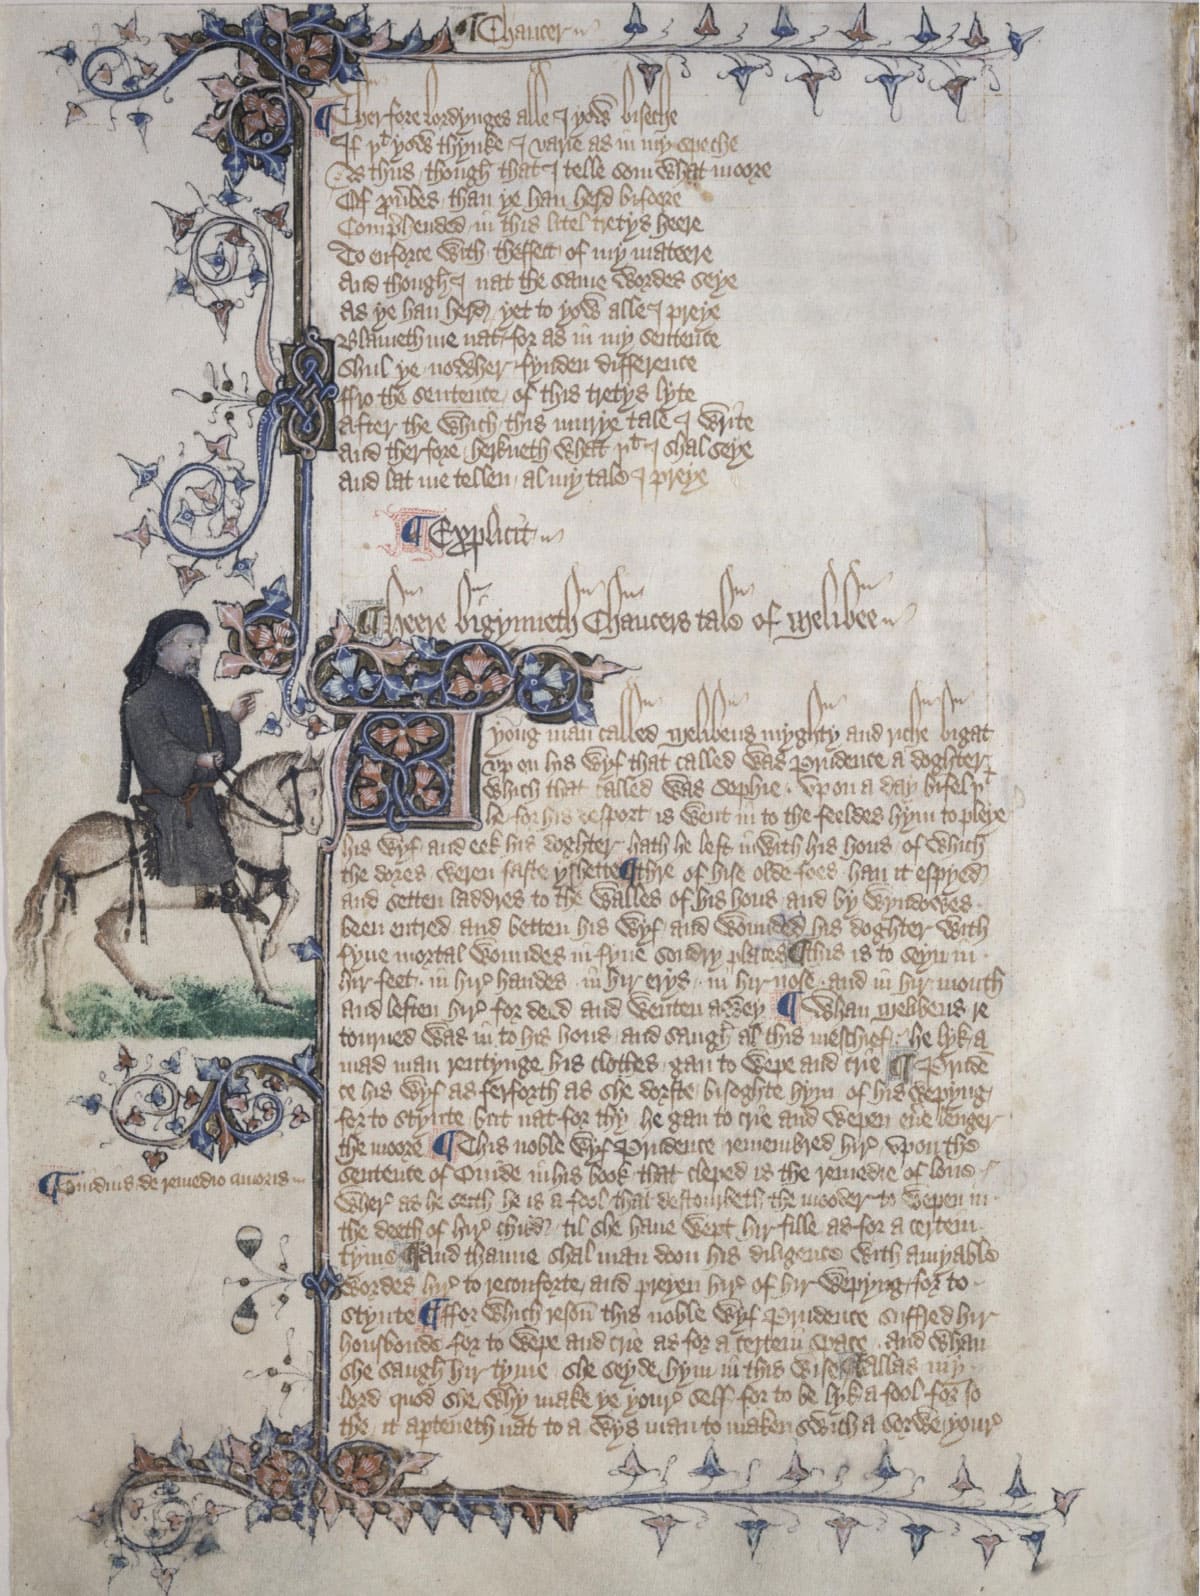 ¶ Chaucer
¶ Therfore lordynges alle I yow biseche
If þt yow thynke I varie as in my speche
As thus though that I telle som what moore
Of prouerbes than ye han herd bifoore
Comprehended in this litel tretys heere
To enforce with theffect of my mateere
And though I nat the same wordes seye
As ye han herd yet to yow alle I preye
Blameth me nat for as in my sentence
Shul ye nowher fynden difference
ffro the sentence of this tretys lyte
After the which this murye tale I write
And therfore herkneth what þt I shal seye
And lat me tellen al my tale I preye
¶ Explicit
¶ Heere bigynneth Chaucers tale of Melibee
A yong man called Melibeus myghty and riche bigat
vp on his wyf that called was Prudence a doghter
which that called was Sophie . vpon a day bifel þt
he for his desport is went in to the feeldes hym to pleye
his wyf and eek his doghter hath he left inwith his hous of which
the dores weren faste yshette ¶ thre of hise olde foes han it espyed
and setten laddres to the walles of his hous and by wyndowes
been entred and betten his wyf and wounded his doghter with
fyue mortal woundes in fyue sondry places ¶ this is to seyn in
hir feet . in hir handes . in hir erys . in hir nose . and in hir mouth
and leften hir for deed and wenten awey ¶ Whan Melibeus re
tourned was in to his hous and saugh al this meschief . he lyk a
mad man rentynge his clothes gan to wepe and crie ¶ Prude
ce his wyf as ferforth as she dorste bisoghte hym of his wepyng
for to stynte but nat for thy he gan to crie and wepen euere lenger
the moore ¶ This noble wyf Prudence remembred hir vpon the
sentence of Ouide in his book that cleped is the remedie of loue
¶ Ouidius de remedio amoris
Wher as he seith he is a fool that destourbeth the mooder to wepen in
the deeth of hir child til she haue wept hir fille as for a certein
tyme ¶ and thanne shal man doon his diligence with amyable
wordes hir to reconforte and preyen hir of hir wepyng for to
stynte ¶ ffor which reson this noble wyf Prudence suffred hir
housbonde for to wepe and crie as for a certein space . and whan
she saugh hir tyme she seyde hym in this wise ¶ allas my
lord quod she why make ye youre self for to be lyk a fool for so
the it aperteneth nat to a wys man to maken swich a sorwe youre